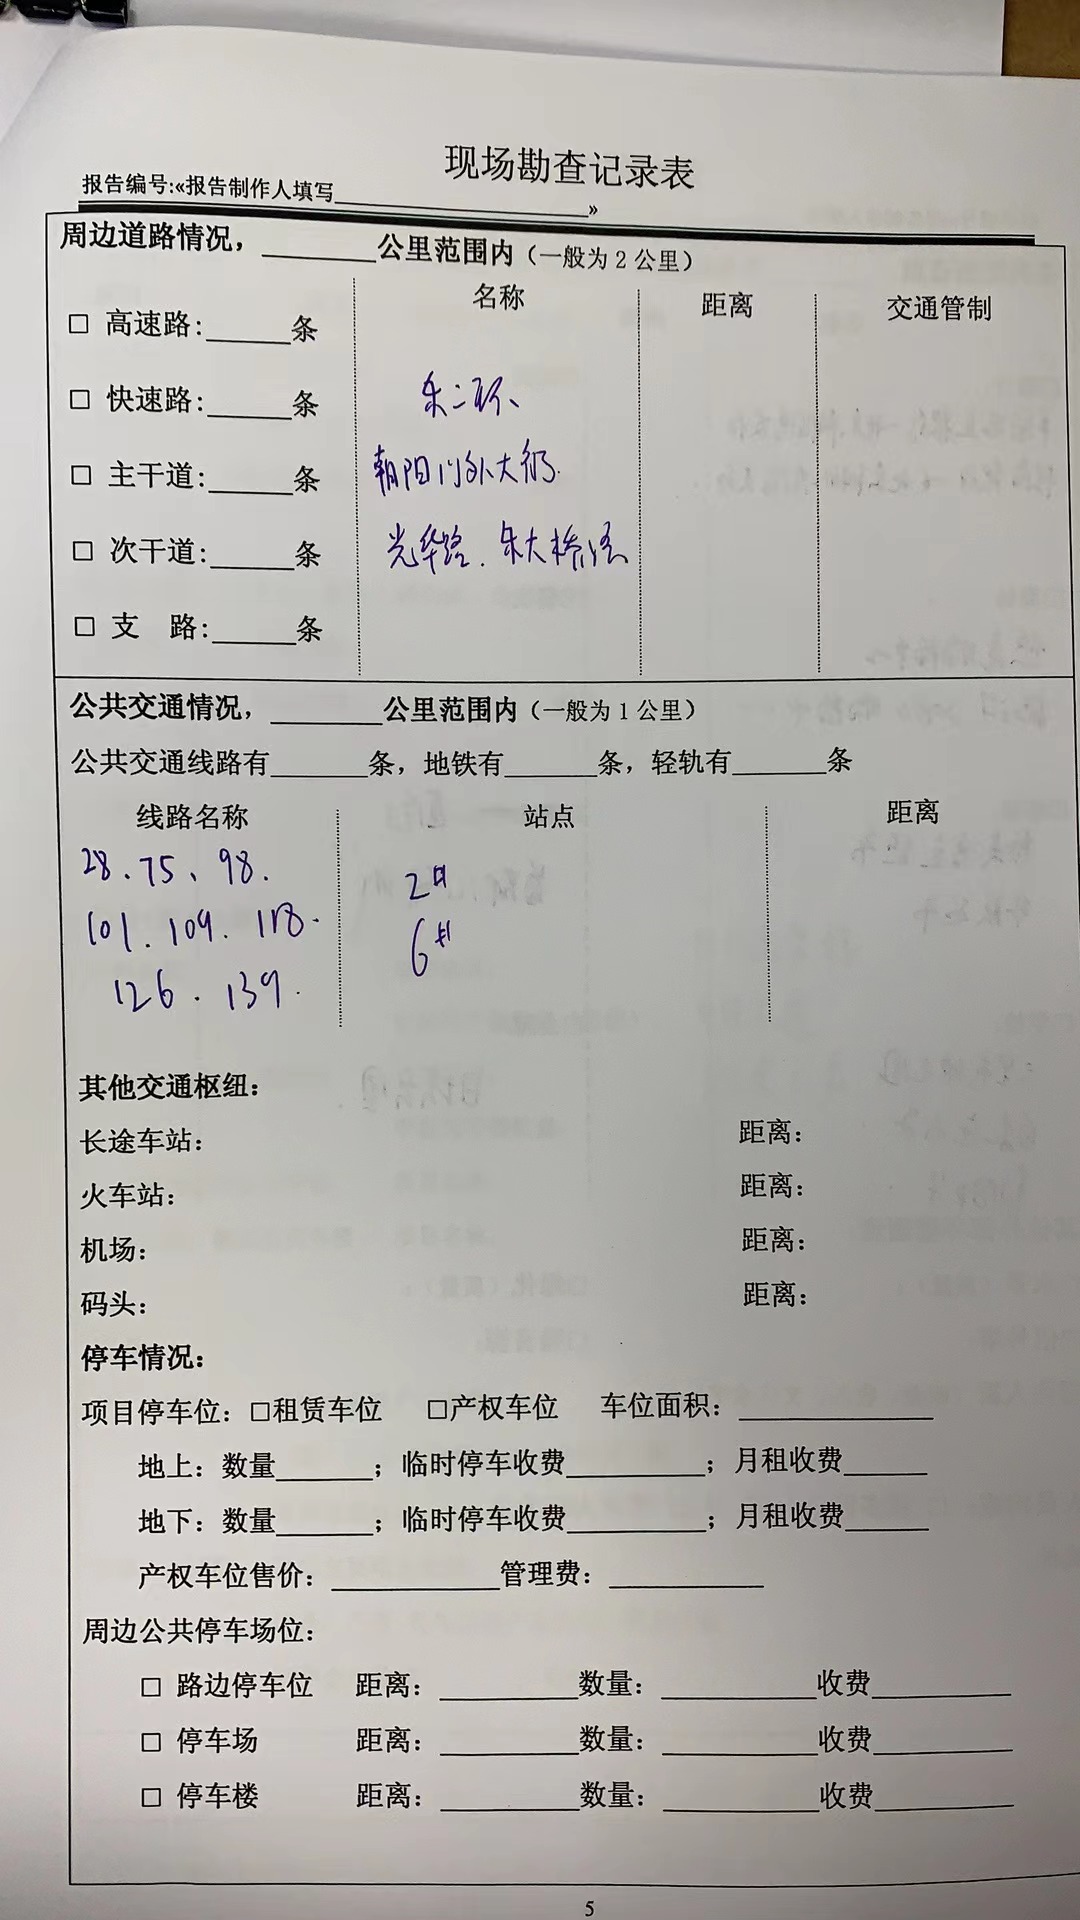 现场勘查记录表
报告编号:«报告制作人填写____________________»
周边道路情况，________公里范围内（一般为 2 公里）
名称 距离 交通管制
□ 高速路:______条
□ 快速路:______条 东二环、
□ 主干道:______条 朝阳门外大街.
□ 次干道:______条 光华路. 东大桥路
□ 支 路:______条
公共交通情况，________公里范围内（一般为 1 公里）
公共交通线路有_______条，地铁有_______条，轻轨有_______条
线路名称 站点 距离
28、75、98. 2#
101. 109. 118. 6#
126. 139.
其他交通枢纽：
长途车站： 距离：
火车站： 距离：
机场： 距离：
码头： 距离：
停车情况：
项目停车位：□租赁车位 □产权车位 车位面积：______________
地上：数量_______；临时停车收费__________；月租收费______
地下：数量_______；临时停车收费__________；月租收费______
产权车位售价：____________管理费：___________
周边公共停车场位：
□ 路边停车位 距离：__________数量：___________收费__________
□ 停车场 距离：__________数量：___________收费__________
□ 停车楼 距离：__________数量：___________收费__________
5